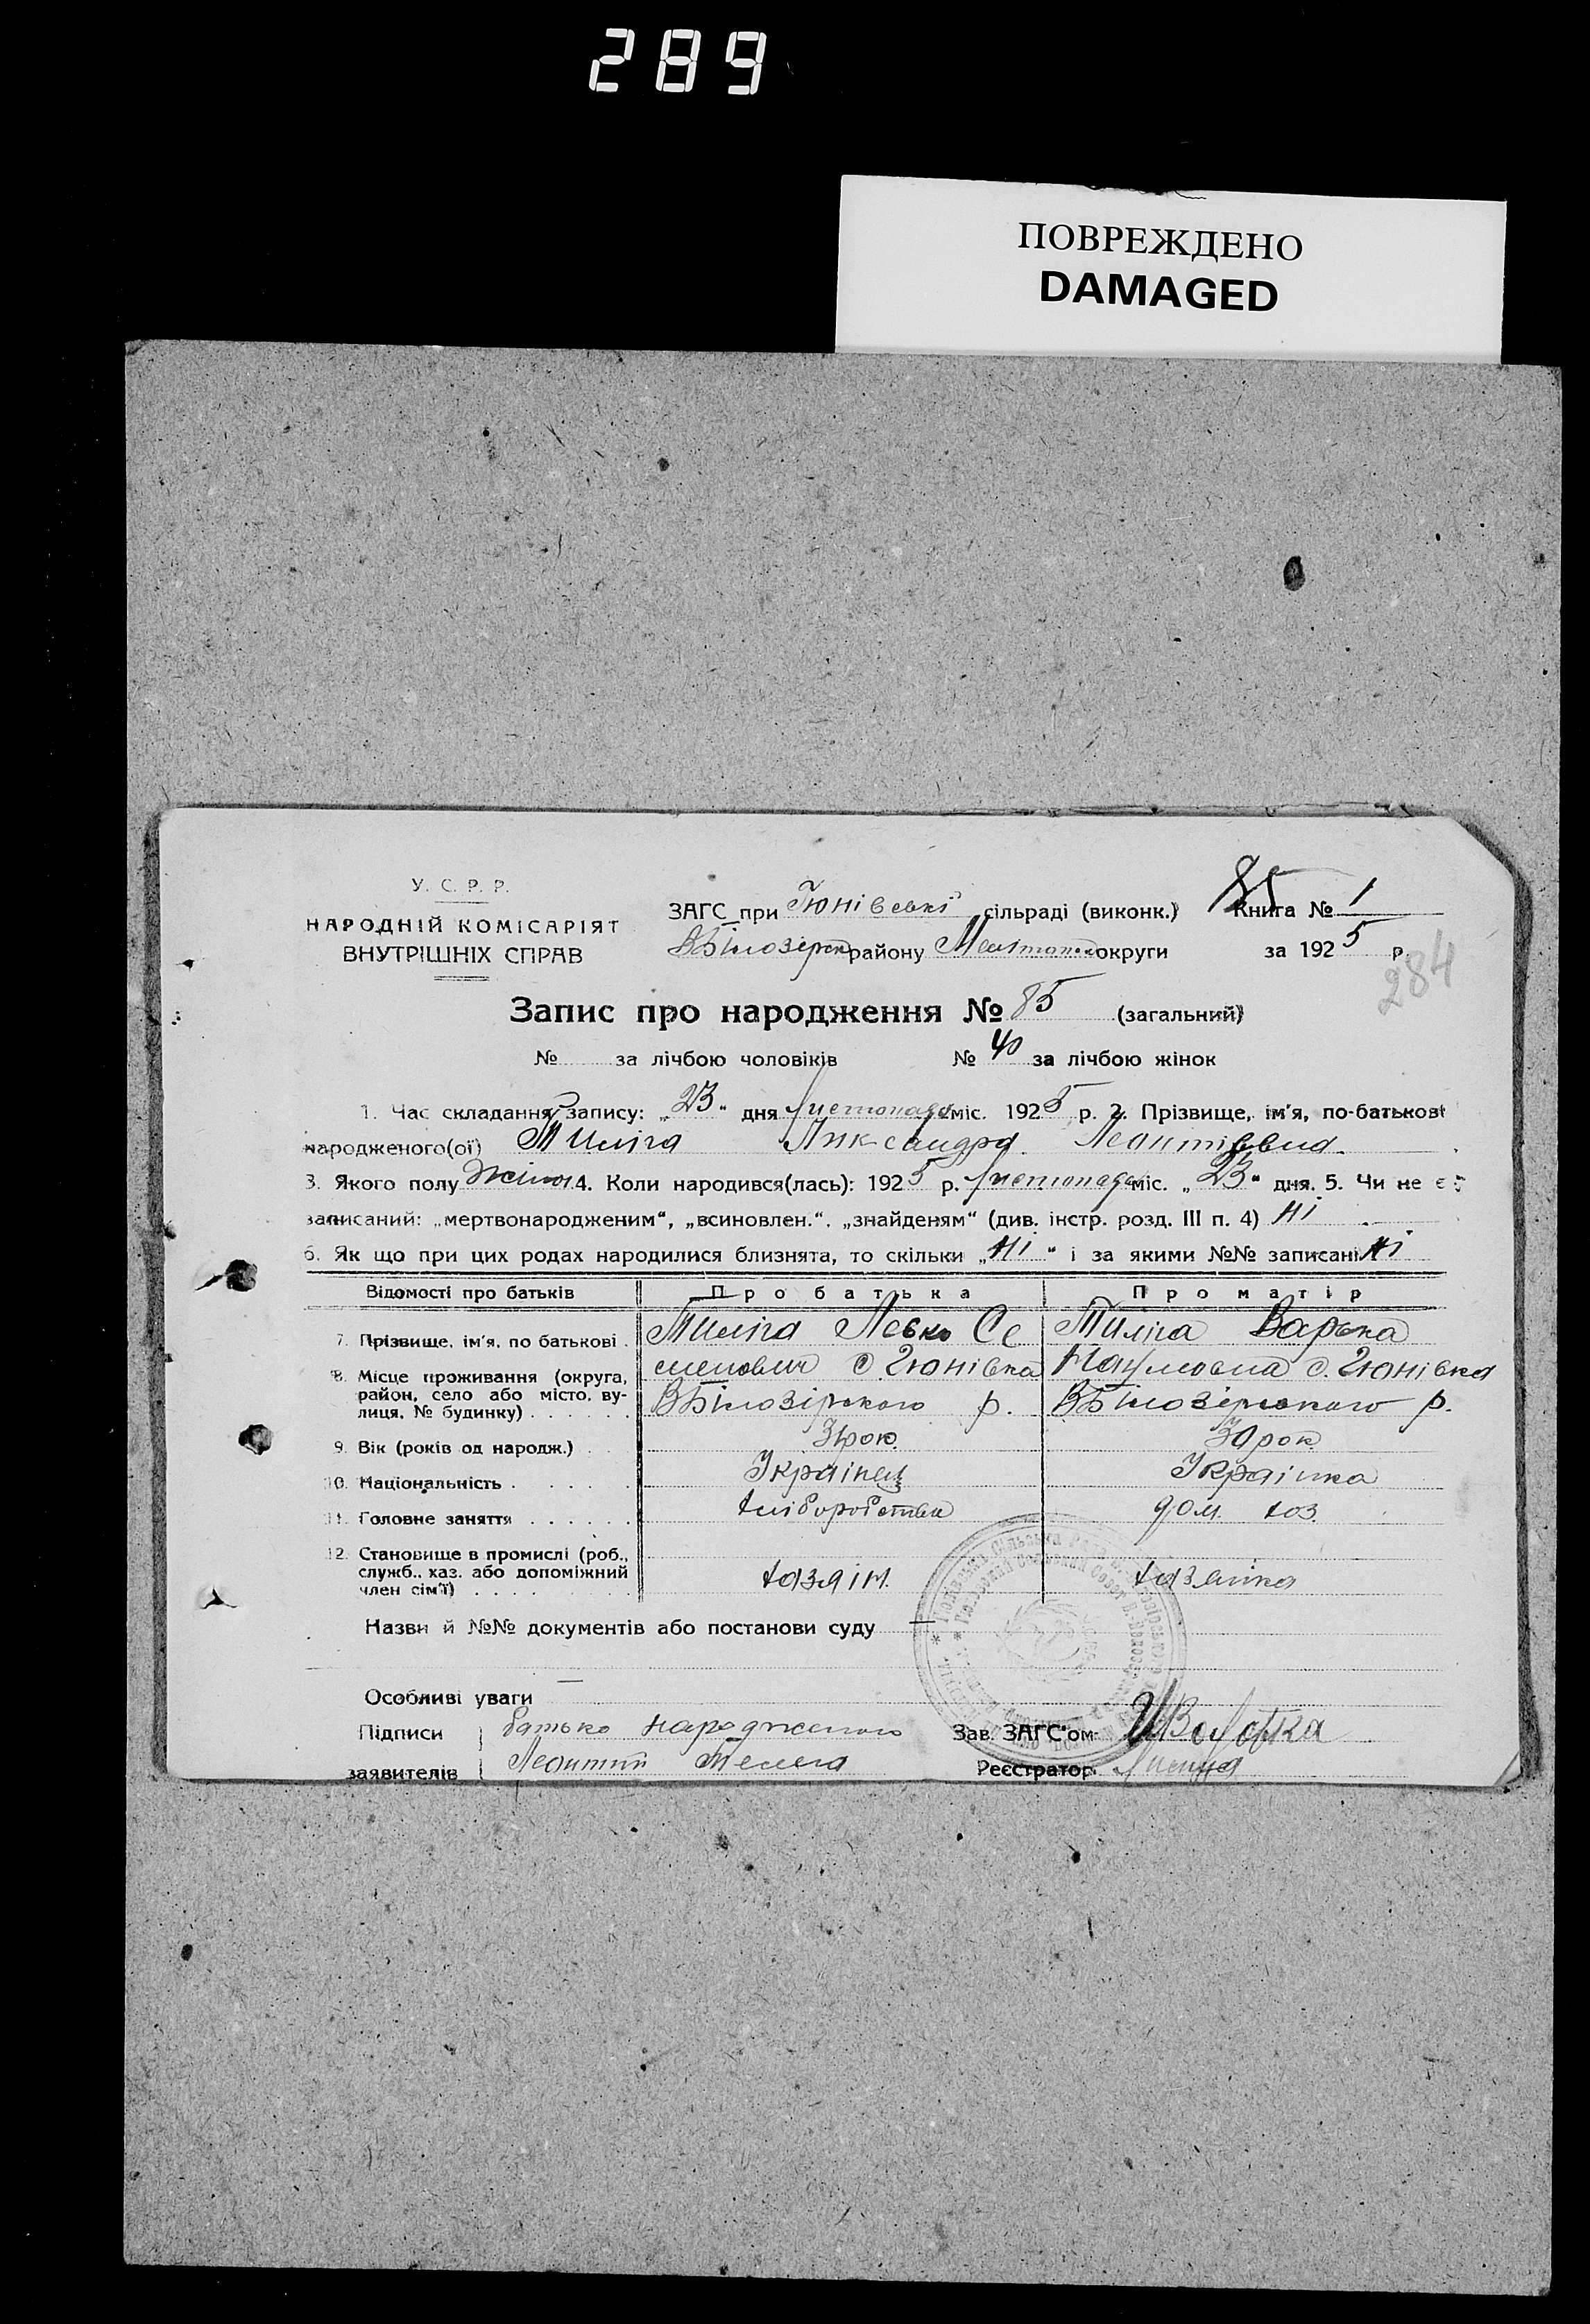 289
ПОВРЕЖДЕНО
DAMAGED
У. С. Р. Р.
НАРОДНІЙ КОМІСАРІЯТ
ВНУТРІШНІХ СПРАВ
ЗАГС при Гюнівські сільраді (виконк.)
ВБілозірск району Мелітопол округи
85
Книга № 1
за 1925 р.
284
Запис про народження № 85 (загальний)
№ за лічбою чоловіків № 40 за лічбою жінок
1. Час складання запису: „23" дня Листопада міс. 1925 р. 2. Прізвище, ім'я, по-батькові
народженого(ої) Тиліга Лександра Леонтіївна
3. Якого полу Жіноч 4. Коли народився(лась): 1925 р. Листопада міс. „23" дня. 5. Чи не є
записаний: „мертвонародженим", „всиновлен.", „знайденям" (див. інстр. розд. III п. 4) Ні
6. Як що при цих родах народилися близнята, то скільки „Ні" і за якими №№ записані Ні
Відомості про батьків Про батька Про матір
7. Прізвище, ім'я, по батькові . Тиліга Левко Се Тиліга Варька
8. Місце проживання (округа, район, село або місто, вулиця, № будинку) . . . . . . менович с. Гюнівка Наумовна с. Гюнівка
ВБілозірского р. ВБілозірского р.
9. Вік (років од народж.) . рок 30 рок
10. Національність . . . . . . Українец Українка
11. Головне заняття . . . . . . хліборобство дом. хоз.
12. Становище в промислі (роб., служб., хаз. або допоміжний член сім'ї) . . . . хазяін. хазяйка
Назви й №№ документів або постанови суду —
Особливі уваги —
Підписи батько народженого Зав. ЗАГС'ом
заявителів Леонтий Телега Реєстратор